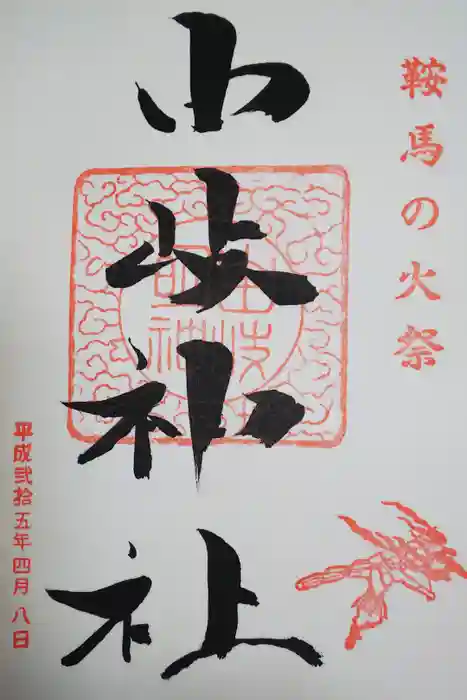 鞍馬の火祭
由岐神社
由岐
明神
平成弐拾五年四月八日